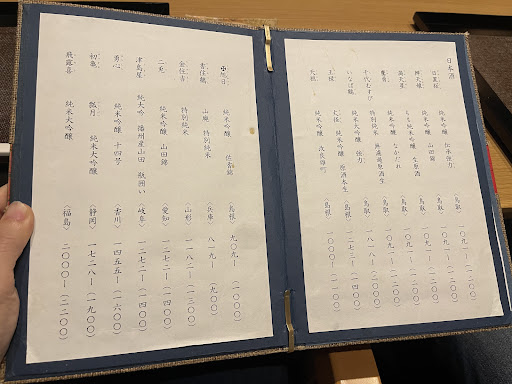 日本酒
日置桜 純米吟醸 伝承強力 〈鳥取〉 一〇九一-(一二〇〇)
辨天娘 純米吟醸 山田錦 〈鳥取〉 一〇九一-(一二〇〇)
純米吟醸 生原酒 〈鳥取〉 一〇九一-(一二〇〇)
鷹勇 純米吟醸 なかだれ 〈鳥取〉 一〇九一-(一二〇〇)
千代むすび 特別純米 無濾過原酒生 〈鳥取〉 一〇九一-(一二〇〇)
いなば鶴 純米大吟醸 強力 〈鳥取〉 一八一八-(二〇〇〇)
王祿 純米吟醸 原酒本生 〈島根〉 一二七三-(一四〇〇)
純米吟醸 改良雄町 〈島根〉 一〇〇〇-(一一〇〇)
旭日 純米吟醸 佐香錦 〈島根〉 九〇九-(一〇〇〇)
香住鶴 山廃 特別純米 〈兵庫〉 八一九-(九〇〇)
特別純米 〈山形〉 一一八二-(一三〇〇)
二兎 純米吟醸 山田錦 〈愛知〉 一二七三-(一四〇〇)
津島屋 純大吟 播州産山田 瓶囲い 〈岐阜〉 一二七三-(一四〇〇)
勇心 純米吟醸 十四号 〈香川〉 一四五五-(一六〇〇)
初亀 瓢月 純米大吟醸 〈静岡〉 一七二八-(一九〇〇)
飛露喜 純米大吟醸 〈福島〉 二〇〇〇-(二二〇〇)